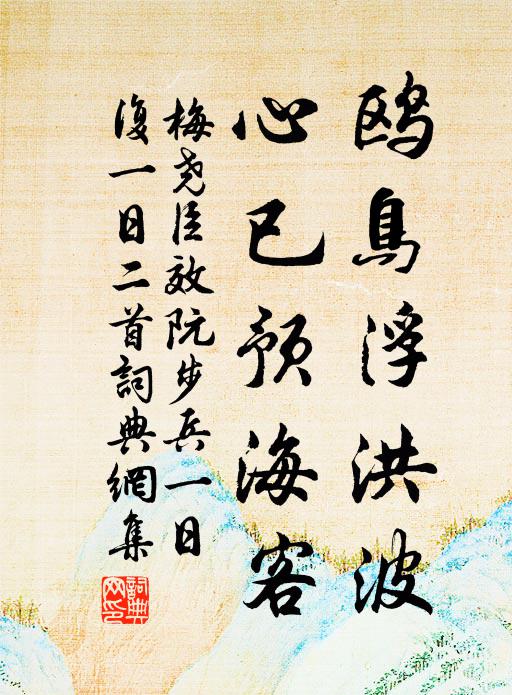 鸥鸟浮洪波
心已预海客
梅尧臣效阮步兵一日
復一日二首詞典網集
詞典
网印